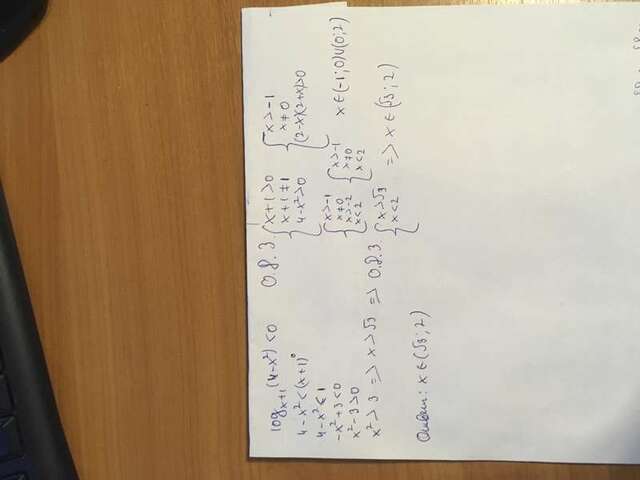 log_{x+1}(4-x²)<0
4-x²<(x+1)⁰
4-x²<1
-x²+3<0
x²-3>0
x²>3 => x>√3 => О.Д.З. { x>√3 x<2 => x∈(√3;2)
О.Д.З. { x+1>0 x+1≠1 4-x²>0 { x>-1 x≠0 (2-x)(2+x)>0
{ x>-1 x≠0 x>-2 x<2 { x>-1 x≠0 x<2 x∈(-1;0)∪(0;2)
Ответ: x∈(√3;2)